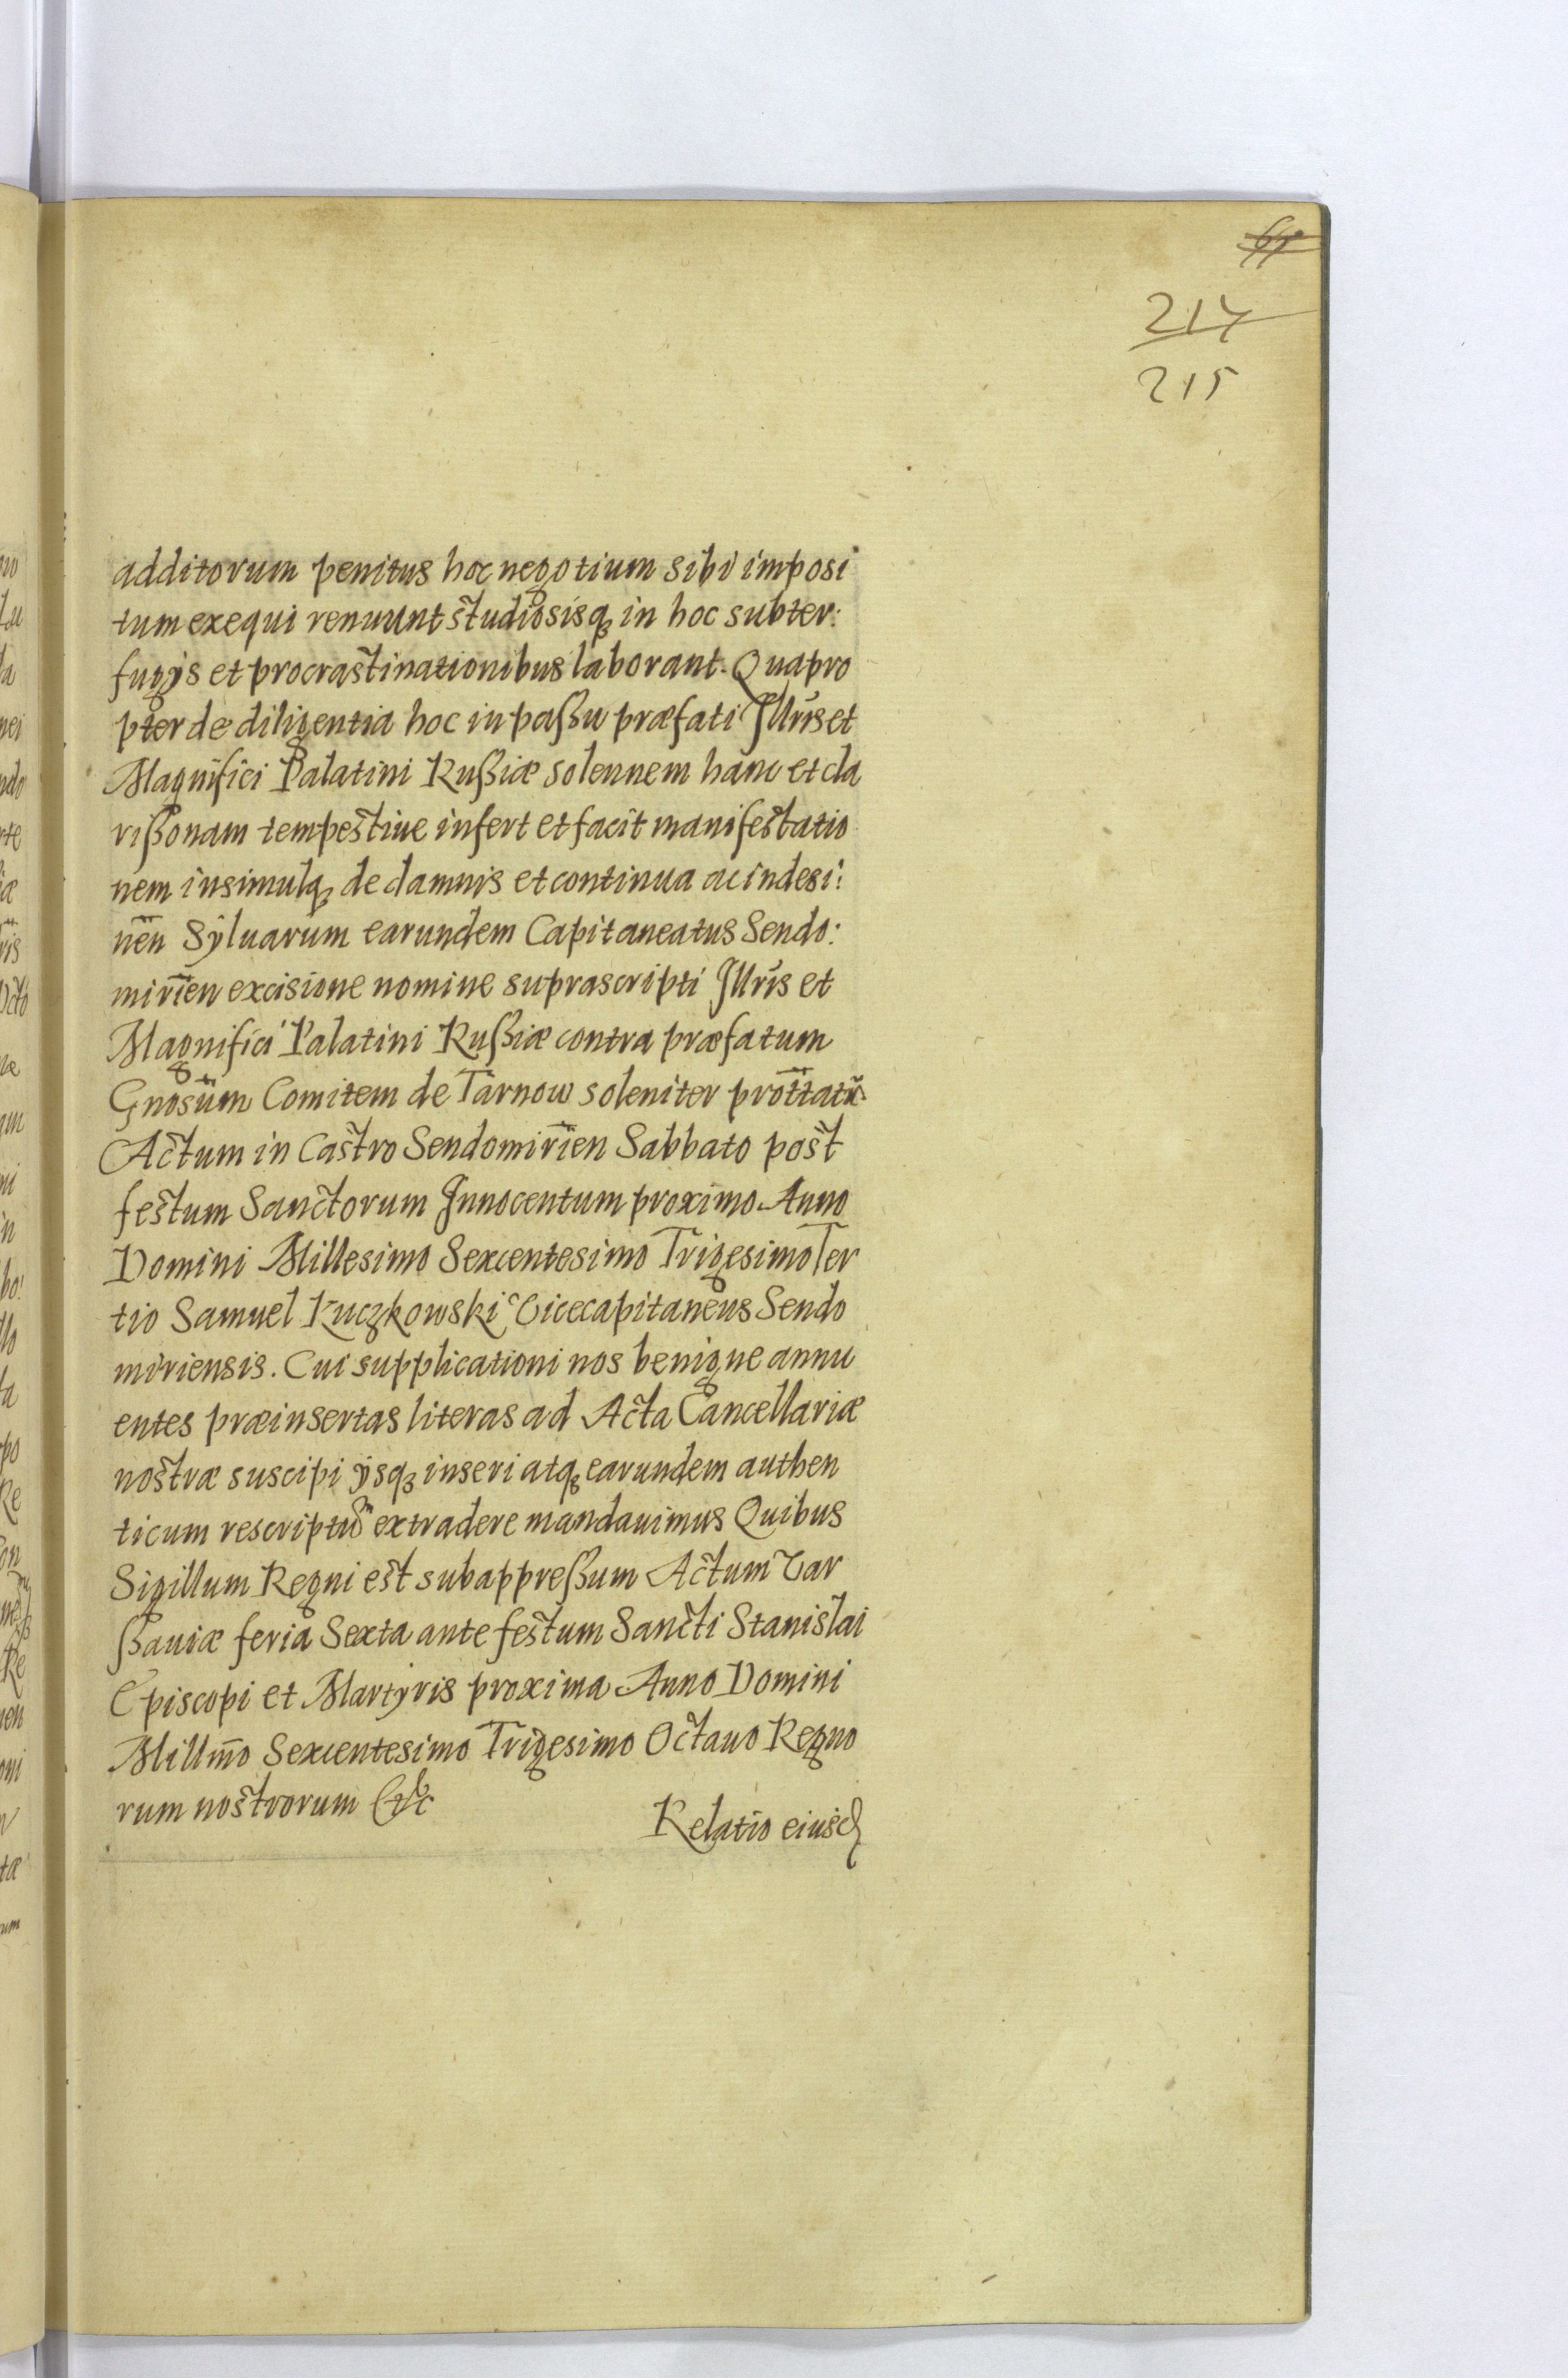 217
215
additorum penitus hoc negotium sibi imposi
tum exequi renuunt studiosisq in hoc subter:
fugÿs et procrastinationibus laborant. Quapro
pter de diligentia hoc in paßu præfati Jllris et
Magnifici Palatini Rußiæ solennem hanc et cla
rißonam tempestiue infert et facit manifestatio
nem insimulq de damnis et continua ac indesi:
nen̄ Syluarum earundem Capitaneatus Sendo:
mirien̄ excisione nomine suprascripti Jllris et
Magnifici Palatini Rußiæ contra præfatum
Gnosum Comitem de Tarnow soleniter prottatr̃
Actum in Castro Sendomirien̄ Sabbato post
festum Sanctorum Jnnocentum proximo Anno
Domini Millesimo Sexcentesimo Trigesimo Ter
tio Samuel Kuczkowski Vicecapitaneus Sendo
miriensis. Cui supplicationi nos benigne annu
entes præinsertas literas ad Acta Cancellariæ
nostræ suscipi ÿsq inseri atq earundem authen
ticum rescriptum extradere mandauimus Quibus
Sigillum Regni est subappreßum Actum Var
ßauiæ feria Sexta ante festum Sancti Stanislai
Episcopi et Martyris proxima Anno Domini
Millm̄o Sexcentesimo Trigesimo Octauo Regno
rum nostrorum &c
Relatio eiusd